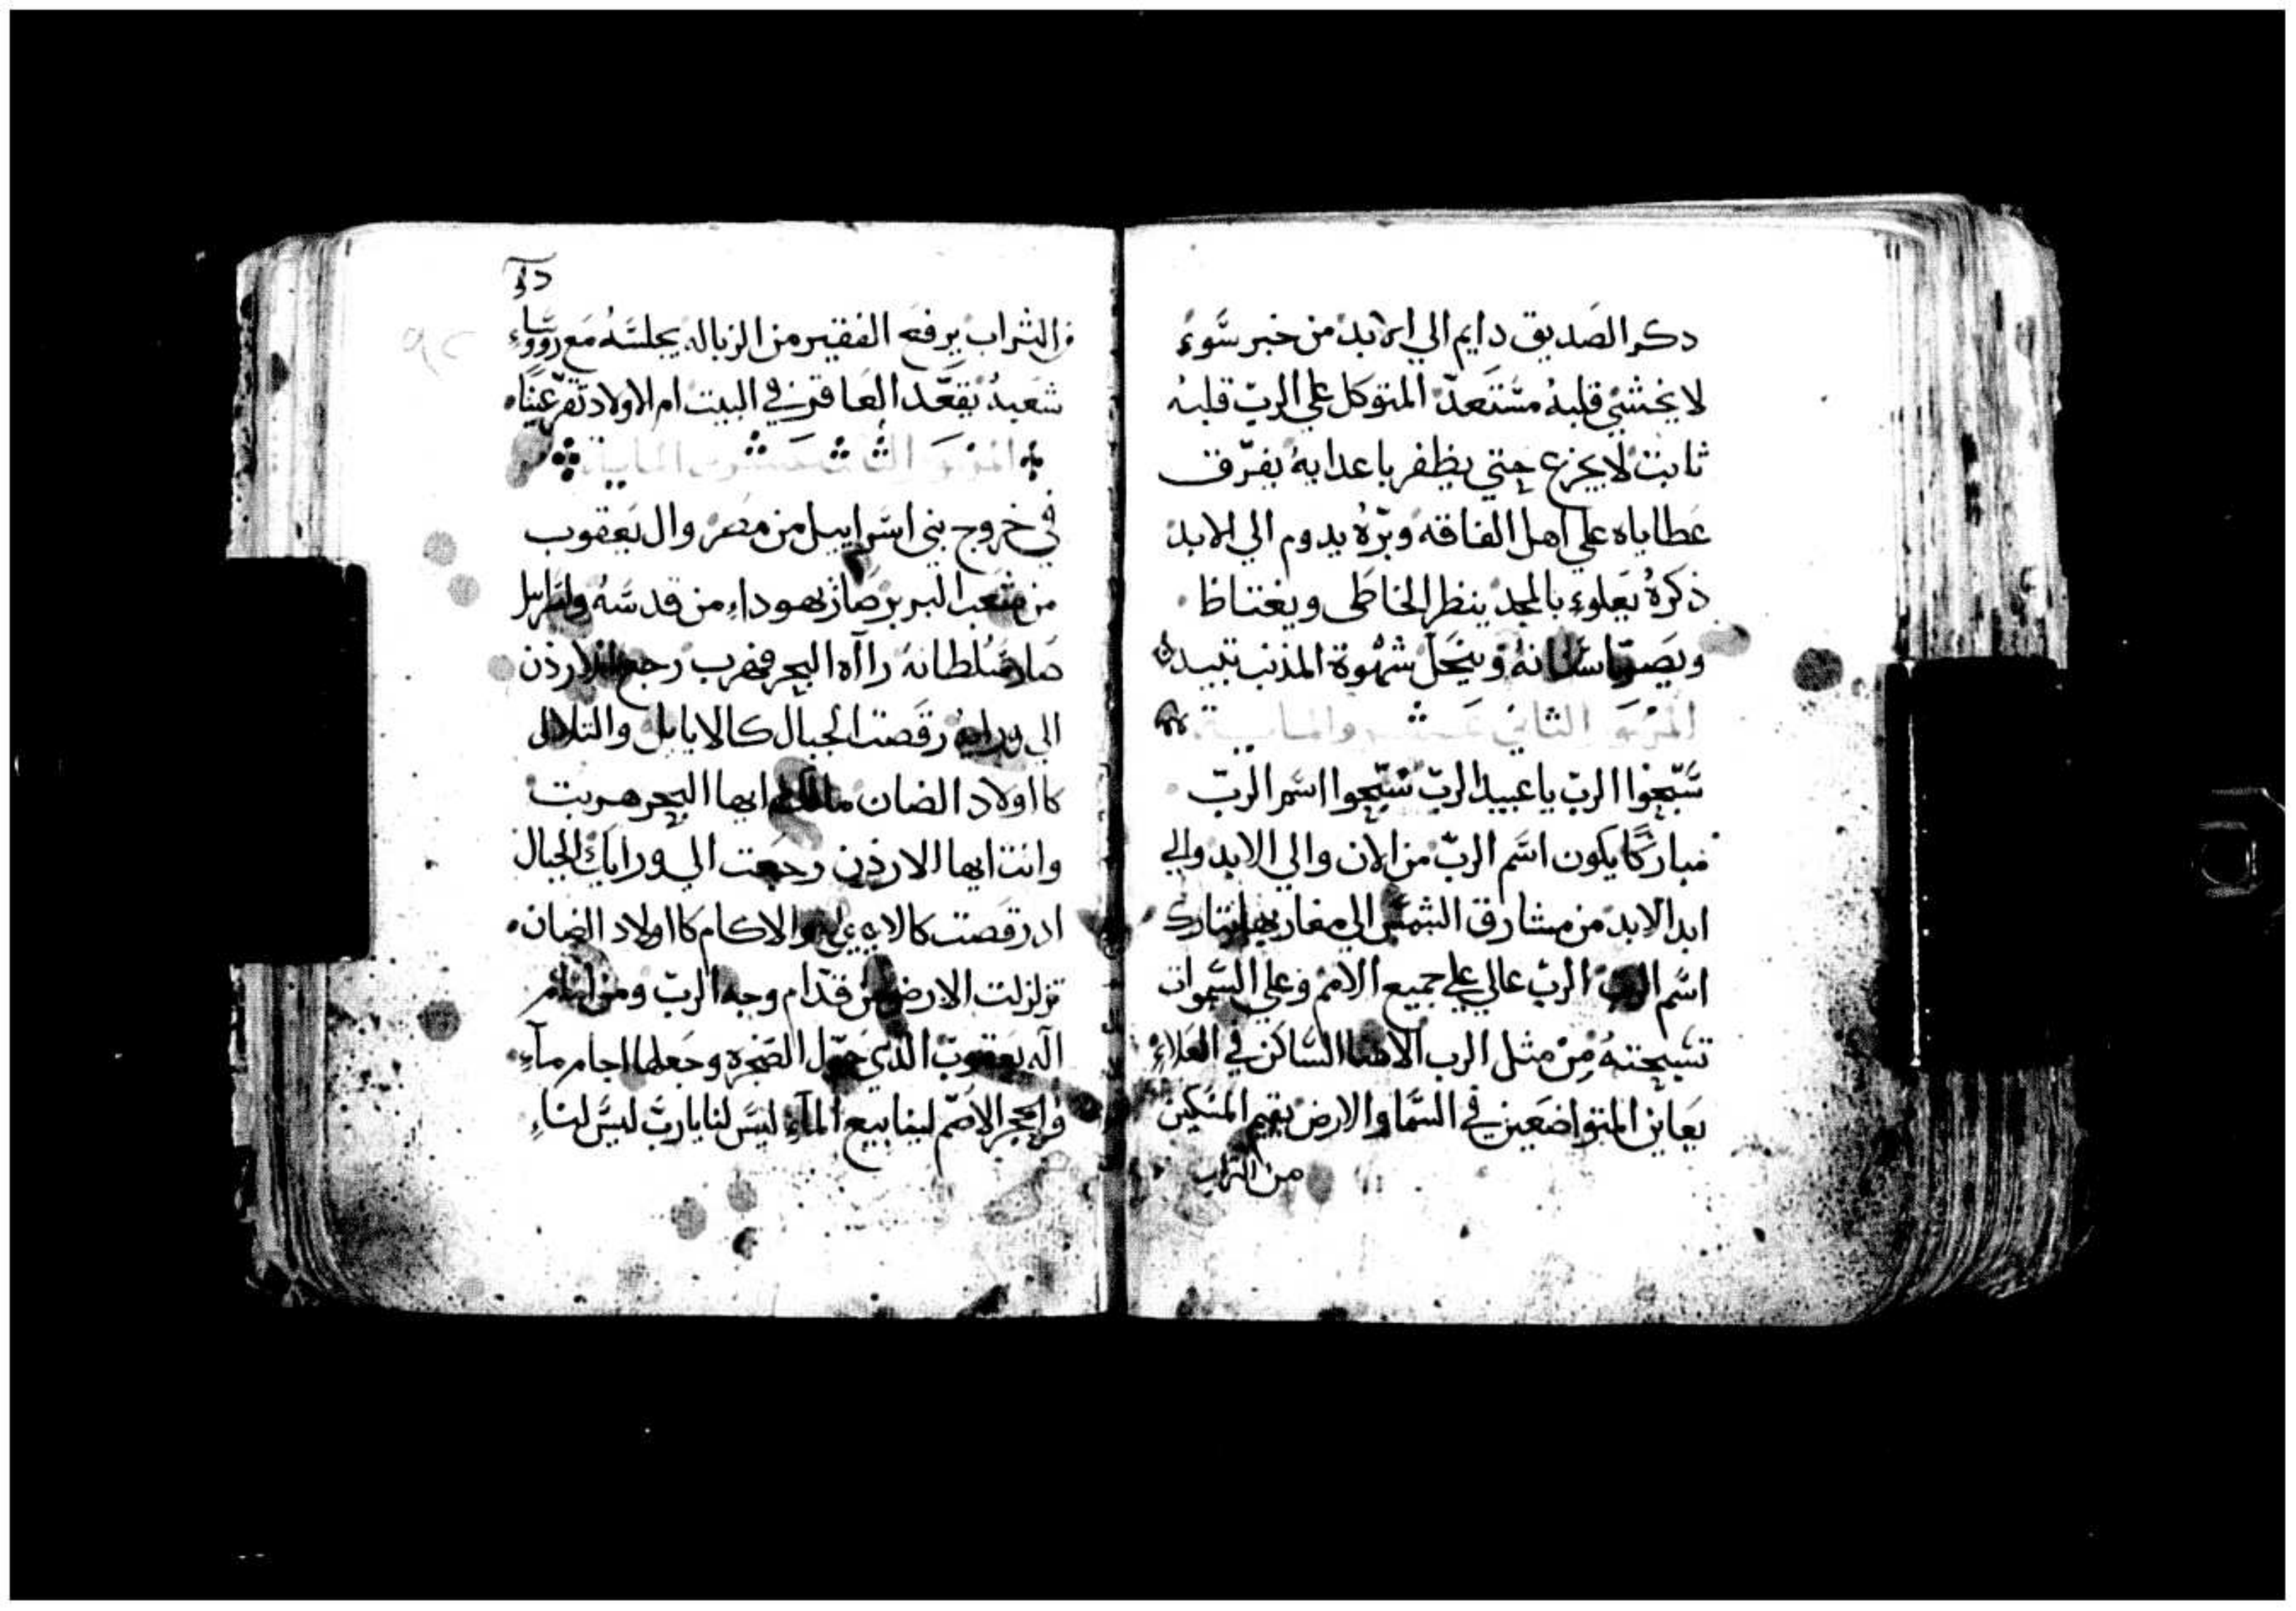 دكر الصديق دايم الي الابد من خبر سوء
لا يخشي قلبه مستعد المتوكل علي الرب قلبه
ثابت لا يجزع حتي يظفر باعدايه يفرق
عطاياه علي اهل الفاقه وبره يدوم الي الابد
ذكره يعلوء بالمجد ينظر الخاطي ويغتاظ
ويصر اسنانه وينحل شهوة المذنب تبيد
المزمور الثاني عشر والماية
سبحوا الرب يا عبيد الرب سبحوا اسم الرب
مباركا يكون اسم الرب من الان والي الابد والي
ابد الابد من مشارق الشمس الي مغاربها تبارك
اسم الرب الرب عالي علي جميع الامم وعلي السموات
تسبحته من مثل الرب الاهنا الساكن في العلاء
يعاين المتواضعين في السما والارض يقيم المسكين
من التراب
من التراب يرفع الفقير من الزباله يجلسه مع رووساء
شعبه يقعد العاقر في البيت ام الاولاد تقر عيناه
المزمور الثالث عشر والماية
في خروج بني اسراييل من مصر وال يعقوب
من شعب البربر صار يهوداء من قدسه واسراييل
صار سلطانه رااه البحر فهرب رجع الارذن
الي ورايه رقصت الجبال كالايايل والتلال
كااولاد الضان مالك ايها البحر هربت
وانت ايها الارذن رجعت الي ورايك الجبال
اد رقصت كالايايل والاكام كااولاد الضان
تزلزلت الارض من قدام وجه الرب ومن امام
اله يعقوب الذي حول الصخره وجعلها اجام مآء
والحجر الاصم لينابيع المآء ليس لنا يارب ليس لناء